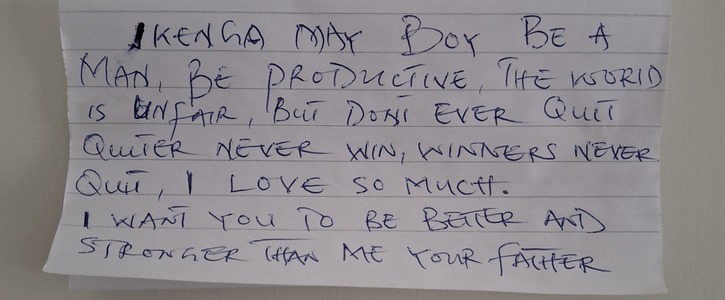 IKENGA MAY BOY BE A
MAN, BE PRODUCTIVE, THE WORLD
IS UNFAIR, BUT DONT EVER QUIT
QUITER NEVER WIN, WINNERS NEVER
QUIT, I LOVE SO MUCH.
I WANT YOU TO BE BETTER AND
STRONGER THAN ME YOUR FATHER